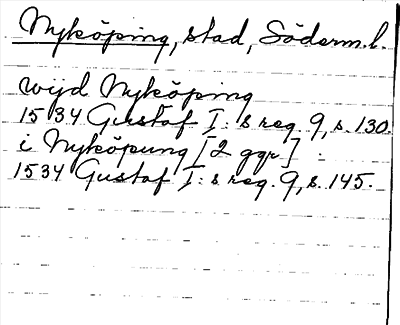 Nyköping, stad, Söderm.l.
wijd Nyköping
1534 Gustaf I:s reg. 9, s. 130.
i Nyköpung [2 ggr]
1534 Gustaf I:s reg. 9, s. 145.